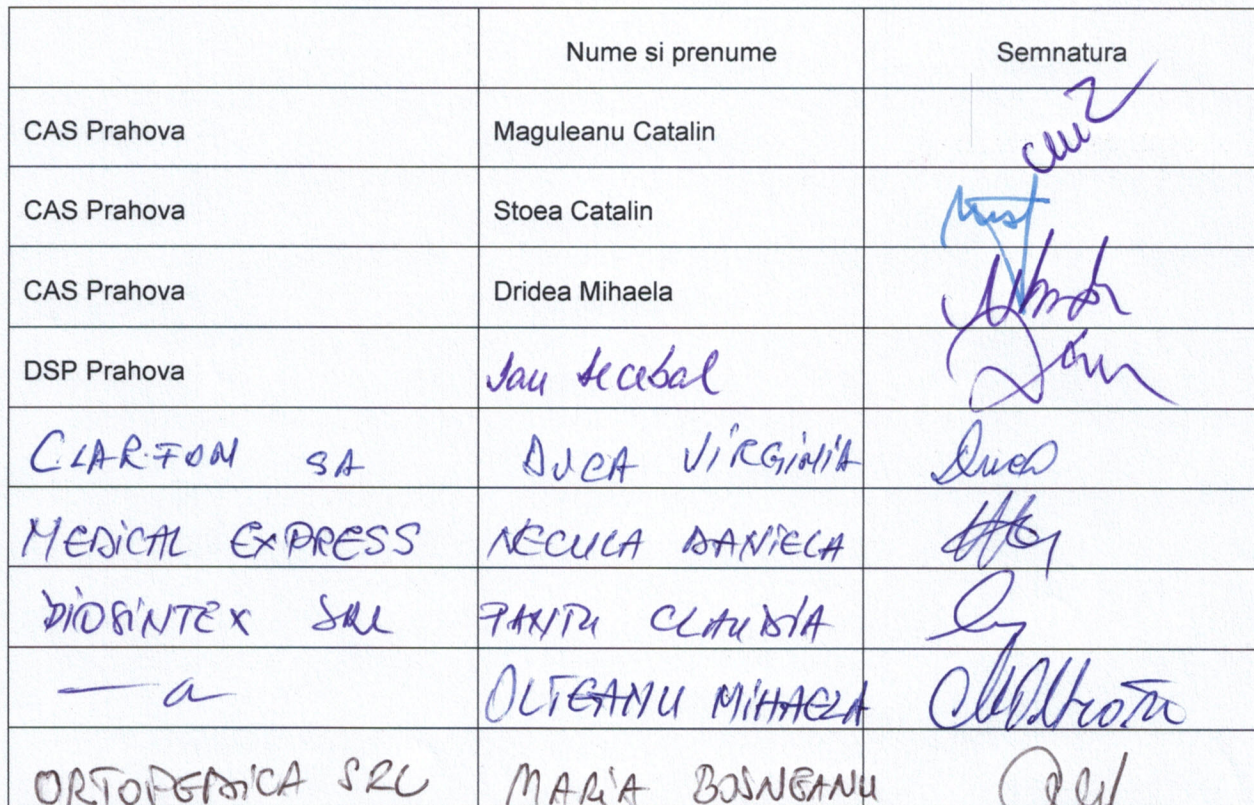 Nume si prenume Semnatura
CAS Prahova Maguleanu Catalin
CAS Prahova Stoea Catalin
CAS Prahova Dridea Mihaela
DSP Prahova
CLARFON SA DUCA VIRGINIA Duca
MEDICAL EXPRESS NECULA DANIELA
BIOSINTEX SRL PANTU CLAUDIA
OLTEANU MIHAELA
ORTOPEDICA SRL MARIA BOSNEANU